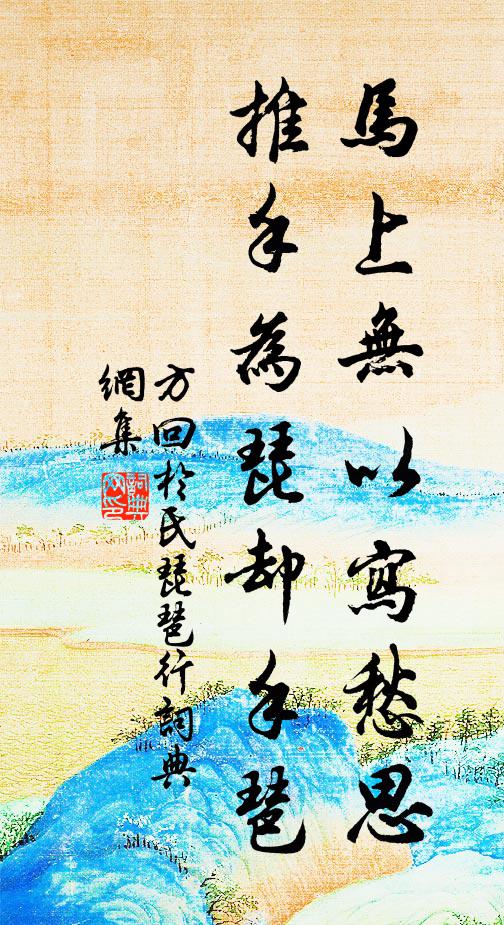 馬上無以寫愁思
推手為琵却手琶
方回於氏琵琶行詞典
網集
詞典